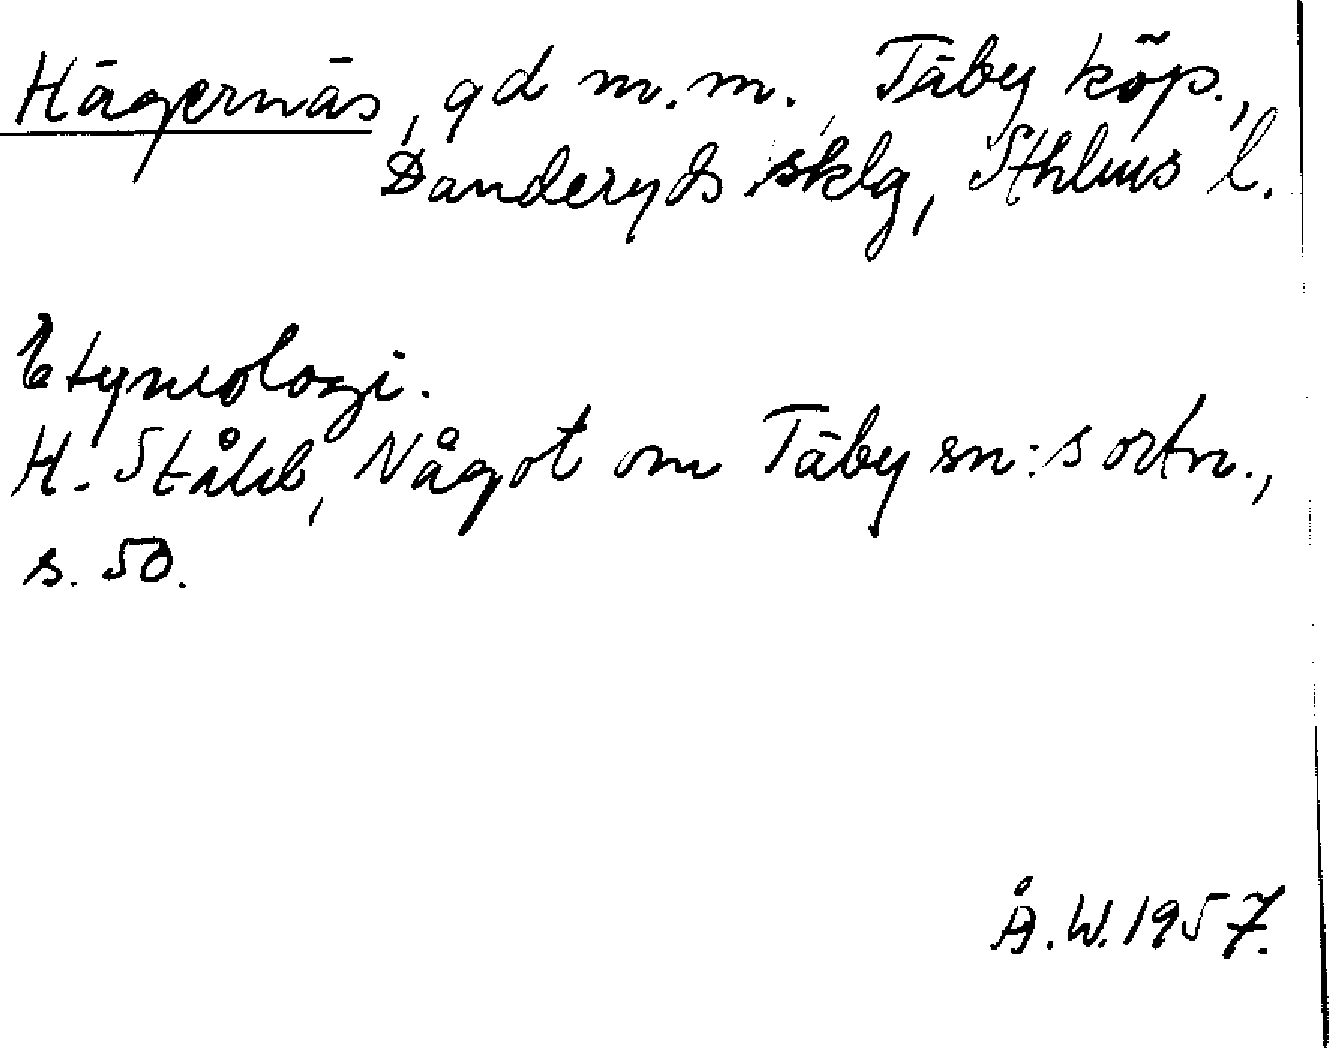 Hägernäs, gd m.m., Täby köp.,
Danderyds sklg, Sthlms l.
Etymologi.
H. Ståhl, Något om Täby sn:s ortn.,
s. 50.
Å.W. 1957.